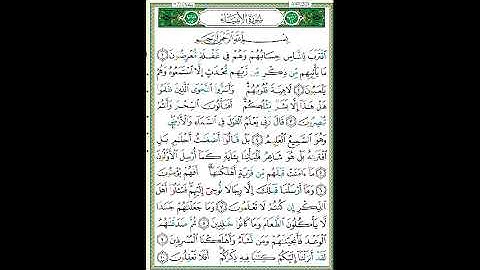 سُورَةُ الأَنبِيَاءِ
بِسْمِ اللَّهِ الرَّحْمَٰنِ الرَّحِيمِ
اقْتَرَبَ لِلنَّاسِ حِسَابُهُمْ وَهُمْ فِي غَفْلَةٍ مُّعْرِضُونَ ١
مَا يَأْتِيهِم مِّن ذِكْرٍ مِّن رَّبِّهِم مُّحْدَثٍ إِلَّا اسْتَمَعُوهُ وَهُمْ
يَلْعَبُونَ ٢ لَاهِيَةً قُلُوبُهُمْ وَأَسَرُّوا النَّجْوَى الَّذِينَ ظَلَمُوا
هَلْ هَٰذَا إِلَّا بَشَرٌ مِّثْلُكُمْ أَفَتَأْتُونَ السِّحْرَ وَأَنتُمْ
تُبْصِرُونَ ٣ قَالَ رَبِّي يَعْلَمُ الْقَوْلَ فِي السَّمَاءِ وَالْأَرْضِ
وَهُوَ السَّمِيعُ الْعَلِيمُ ٤ بَلْ قَالُوا أَضْغَاثُ أَحْلَامٍ بَلِ
افْتَرَاهُ بَلْ هُوَ شَاعِرٌ فَلْيَأْتِنَا بِآيَةٍ كَمَا أُرْسِلَ الْأَوَّلُونَ
٥ مَا آمَنَتْ قَبْلَهُم مِّن قَرْيَةٍ أَهْلَكْنَاهَا أَفَهُمْ يُؤْمِنُونَ
٦ وَمَا أَرْسَلْنَا قَبْلَكَ إِلَّا رِجَالًا نُّوحِي إِلَيْهِمْ فَاسْأَلُوا أَهْلَ
الذِّكْرِ إِن كُنتُمْ لَا تَعْلَمُونَ ٧ وَمَا جَعَلْنَاهُمْ جَسَدًا
لَّا يَأْكُلُونَ الطَّعَامَ وَمَا كَانُوا خَالِدِينَ ٨ ثُمَّ صَدَقْنَاهُمُ
الْوَعْدَ فَأَنجَيْنَاهُمْ وَمَن نَّشَاءُ وَأَهْلَكْنَا الْمُسْرِفِينَ ٩
لَقَدْ أَنزَلْنَا إِلَيْكُمْ كِتَابًا فِيهِ ذِكْرُكُمْ أَفَلَا تَعْقِلُونَ ١٠